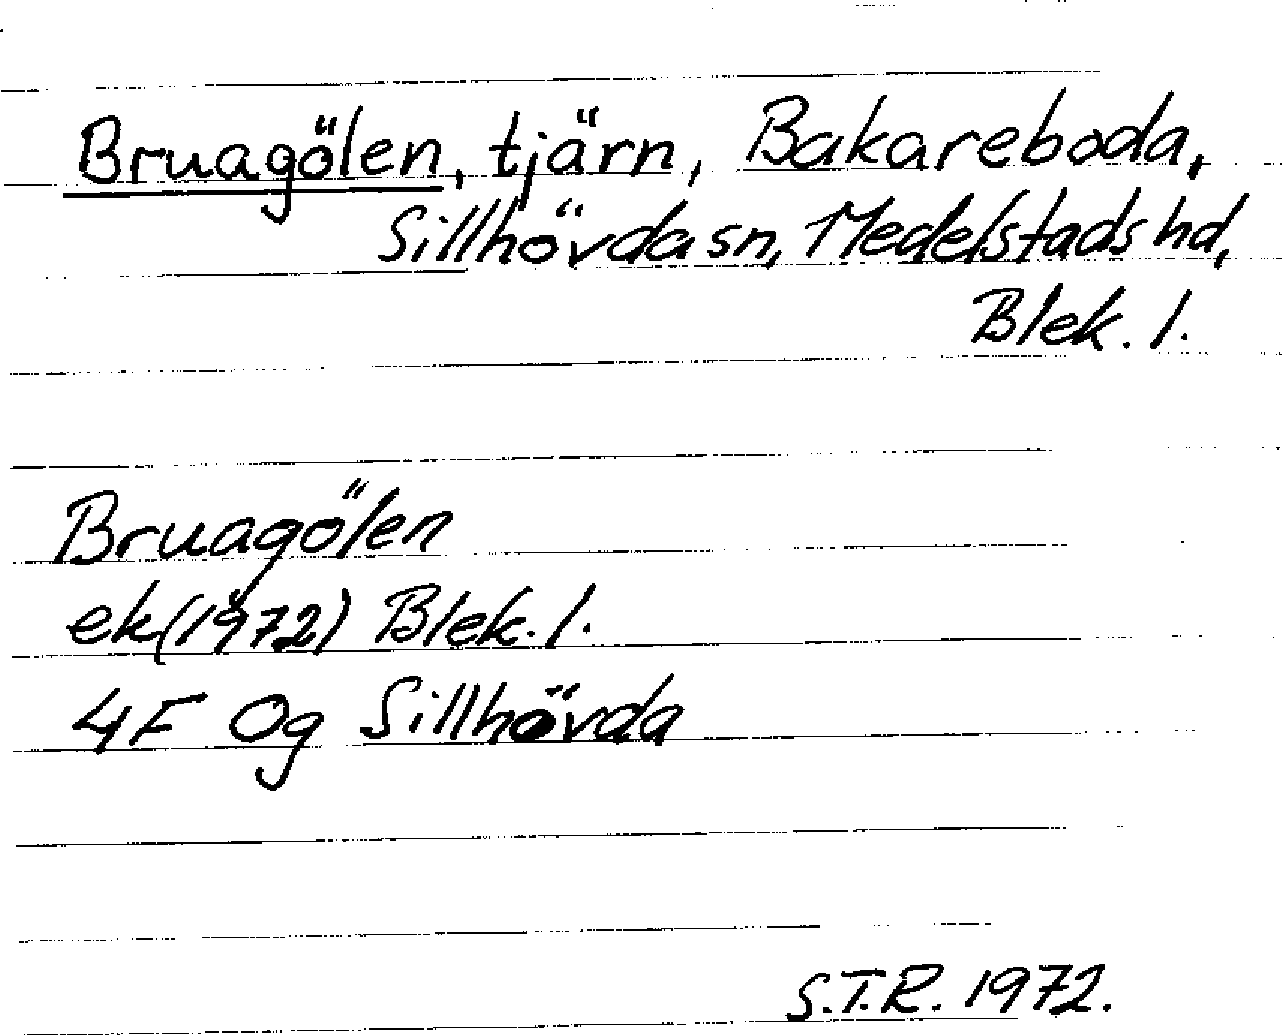 Bruagölen, tjärn, Bakareboda,
Sillhövda sn, Medelstads hd,
Blek. l.
Bruagölen
ek (1972) Blek. l.
4F 0g Sillhövda
S.T.R. 1972.